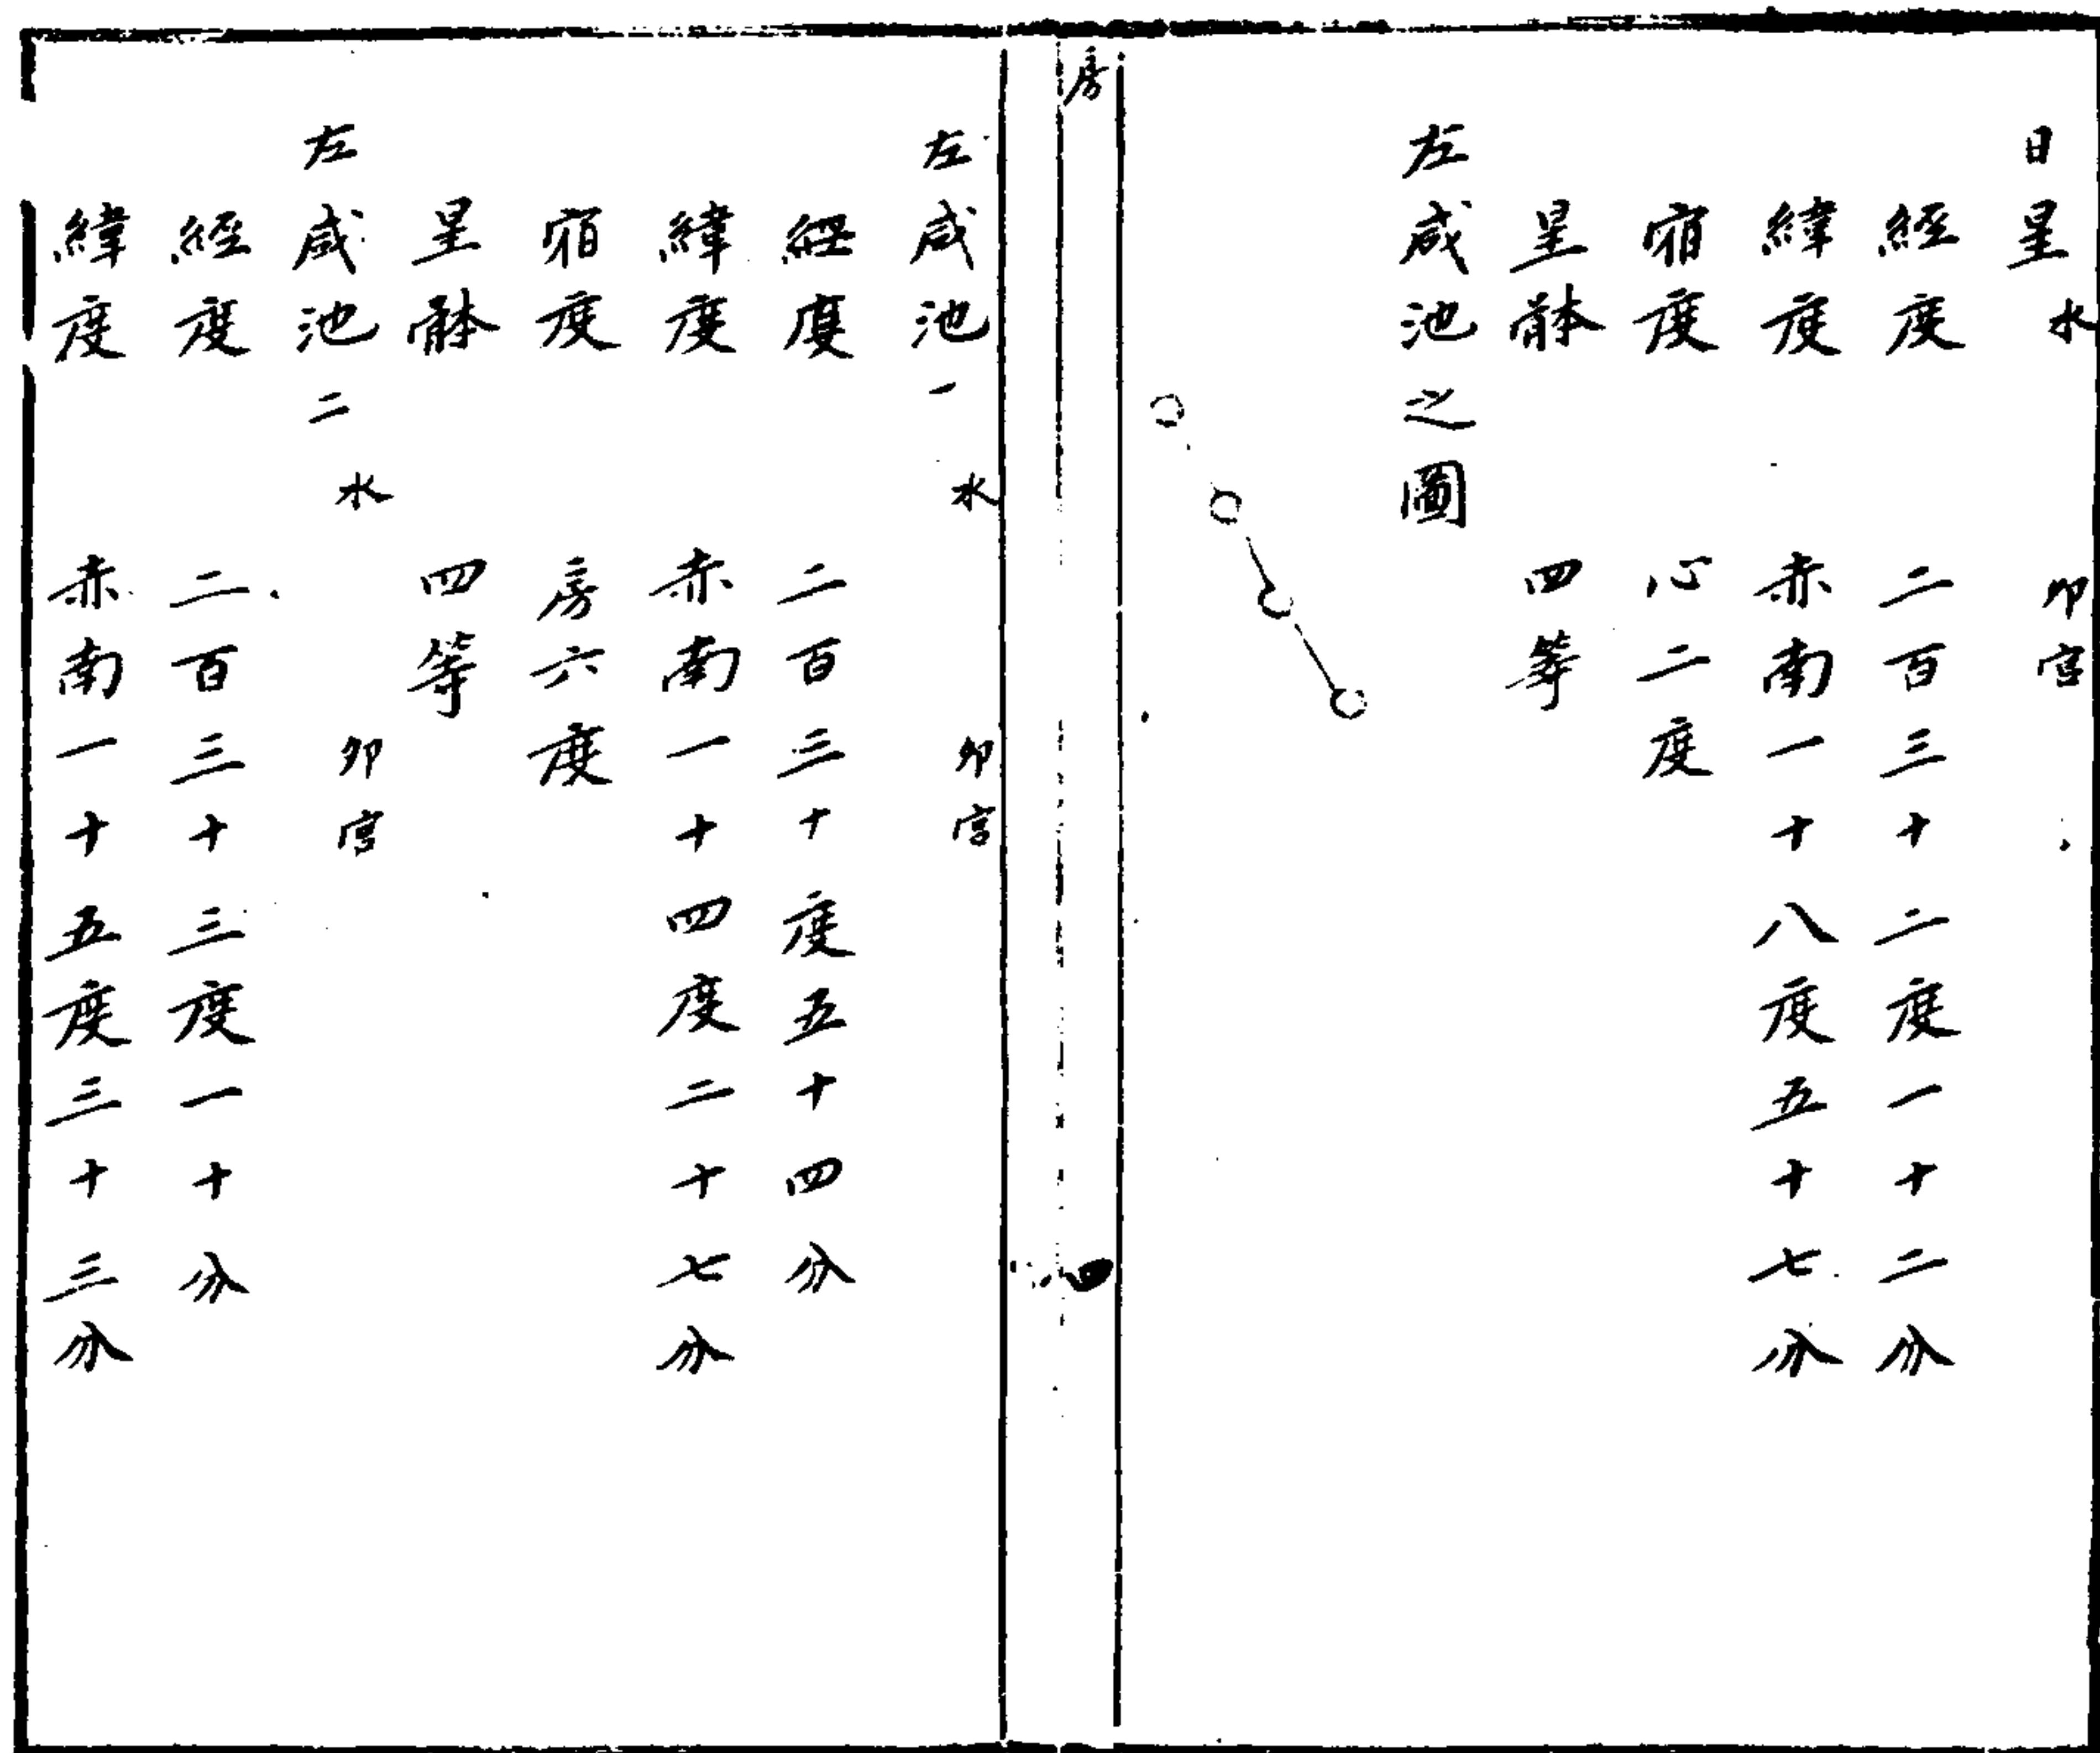 日星 水 卯宮
經度 二百三十二度一十二分
緯度 赤南一十八度五十七分
宿度 心二度
星體 四等
左咸池之圖
房
左咸池一 水 卯宮
經度 二百三十度五十四分
緯度 赤南一十四度二十七分
宿度 房六度
星體 四等
左咸池二 水 卯宮
經度 二百三十三度一十分
緯度 赤南一十五度三十三分